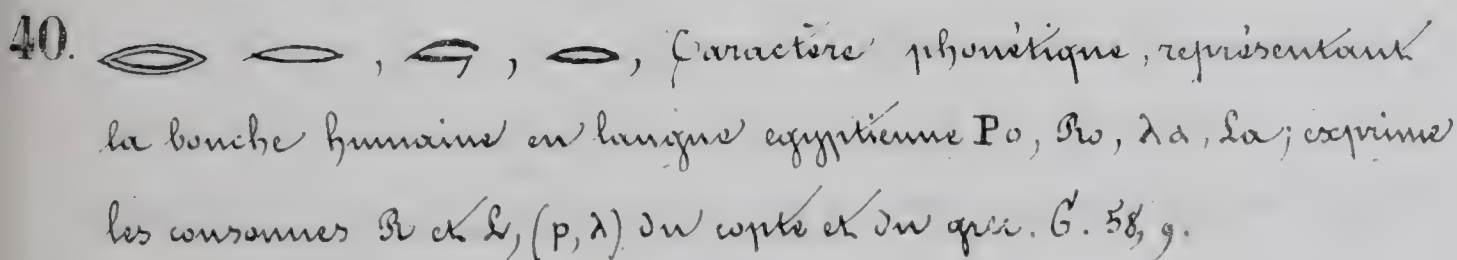 40. 𓂋 𓂋, 𓂋, 𓂋, Caractère phonétique, représentant
la bouche humaine en langue egyptienne Ⲣo, Ro, λα, La; exprime
les consonnes R et L, (ⲣ, λ) du copte et du grec. G. 58, 9.